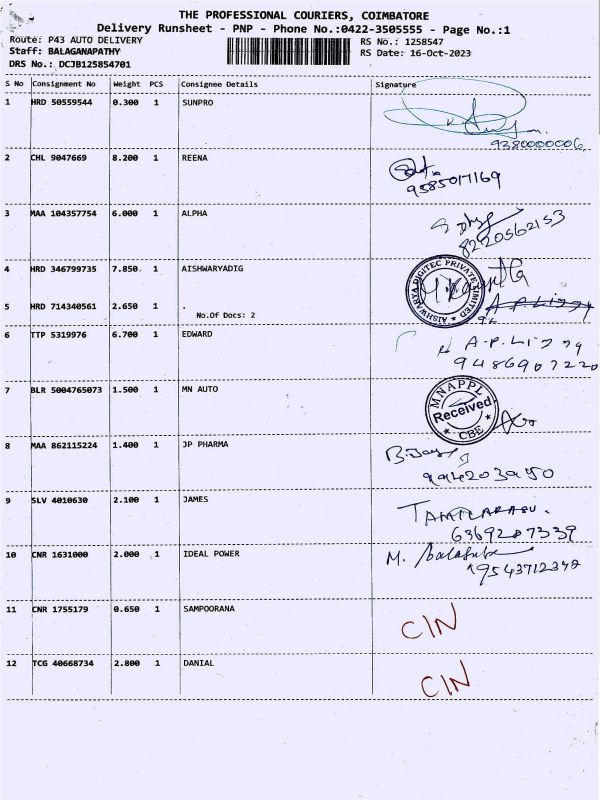 THE PROFESSIONAL COURIERS, COIMBATORE
Delivery Runsheet - PNP - Phone No.:0422-3505555 - Page No.:1
Route: P43 AUTO DELIVERY
RS No.: 1258547
Staff: BALAGANAPATHY
RS Date: 16-Oct-2023
DRS No.: DCJB125854701
S No Consignment No Weight PCS Consignee Details Signature
1 HRD 50559544 0.300 1 SUNPRO
9380000006
2 CHL 9047669 8.200 1 REENA
9585017169
3 MAA 104357754 6.000 1 ALPHA
8220562153
4 HRD 346799735 7.850 1 AISHWARYADIG
AISHWARYA DIGITEC PRIVATE LIMITED
5 HRD 714340561 2.650 1 .
No.Of Docs: 2
6 TTP 5319976 6.700 1 EDWARD
A.P.Lizzy
9486907220
7 BLR 5004765073 1.500 1 MN AUTO
MNAPPL
Received
CBE
8 MAA 862115224 1.400 1 JP PHARMA
B.Jay
9 SLV 4010630 2.100 1 JAMES
TAMILARASU.
6369287339
10 CNR 1631000 2.000 1 IDEAL POWER
M. Balasub
9543712342
11 CNR 1755179 0.650 1 SAMPOORANA
CIN
12 TCG 40668734 2.800 1 DANIAL
CIN